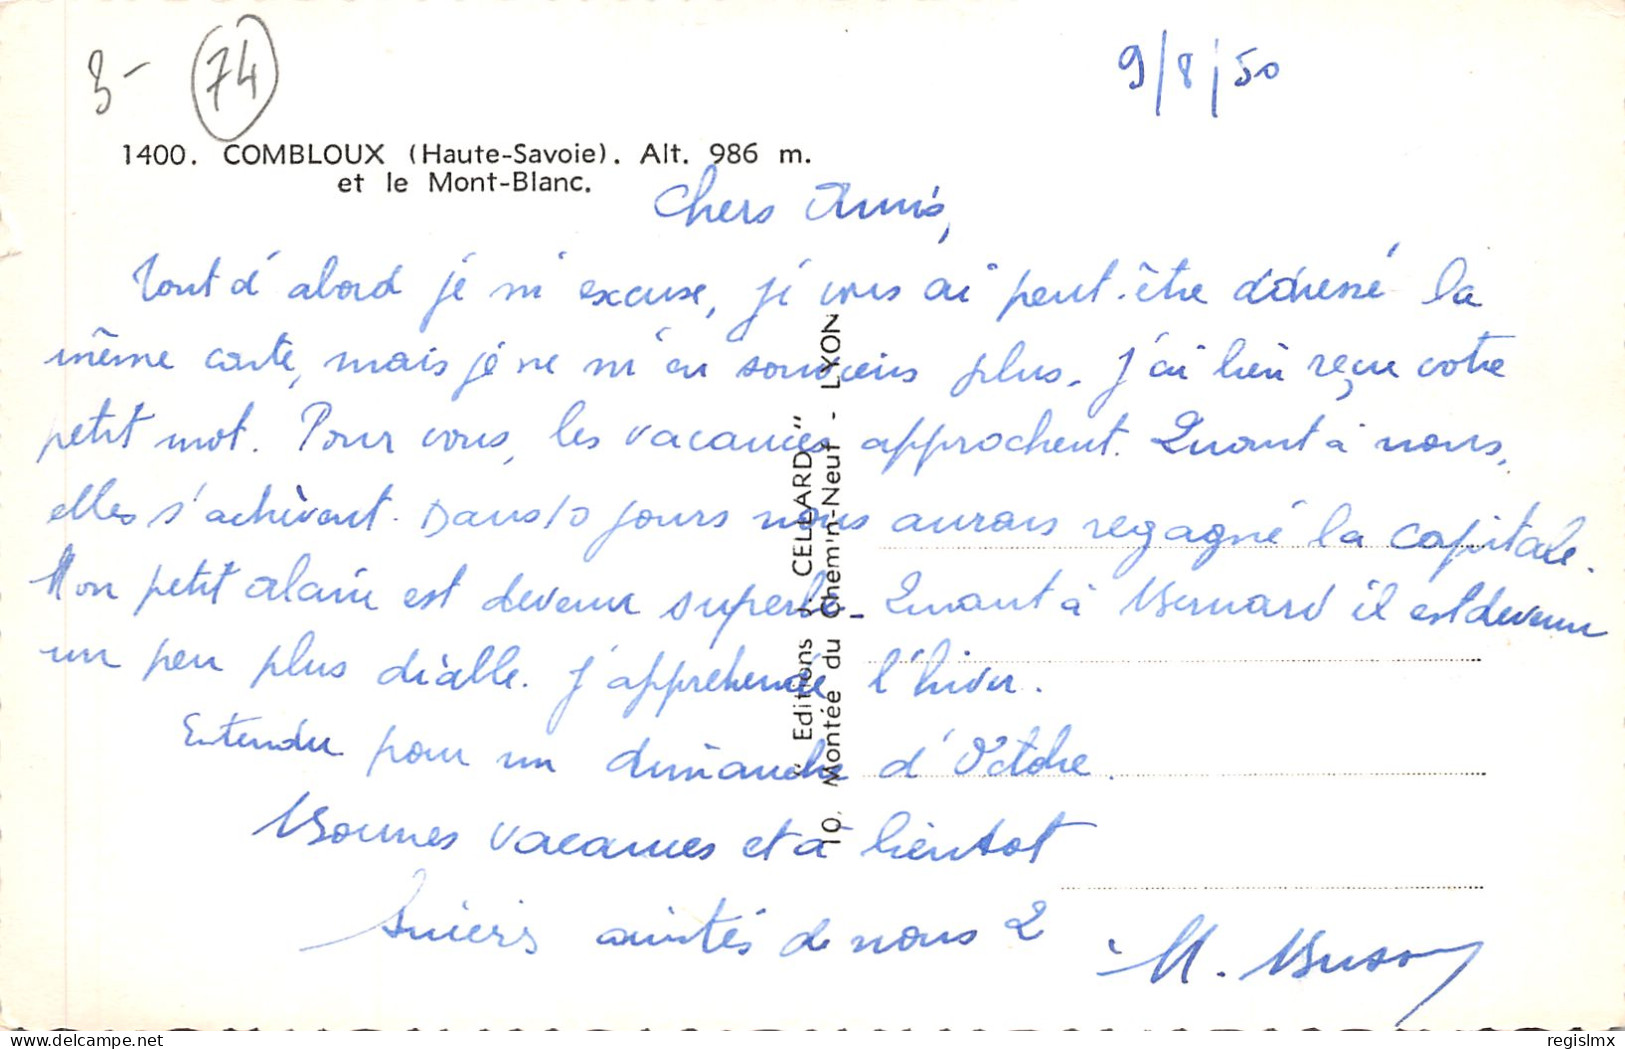 3- 74
9/8/50
1400. COMBLOUX (Haute-Savoie). Alt. 986 m.
et le Mont-Blanc.
Chers Amis,
Tout d'abord je m'excuse, je vous ai peut-être adressé la
même carte, mais je ne m'en souviens plus. J'ai bien reçu votre
petit mot. Pour vous, les vacances approchent. Quant à nous,
elles s'achèvent. Dans 10 jours nous aurons regagné la capitale.
Mon petit Alain est devenu superbe - Quant à Bernard il est devenu
un peu plus diable. J'appréhende l'hiver.
Entendu pour un dimanche d'Octobre.
Bonnes vacances et à bientôt
amitiés de nous 2
M.
"Editions J. CELLARD"
10, Montée du Chem'n-Neuf - LYON
delcampe.net
regislmx